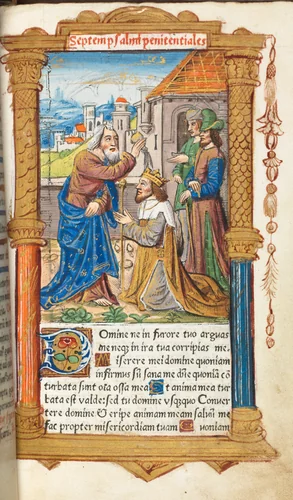 Septem psalmi penitentiales
Domine ne in furore tuo arguas
me neqz in ira tua corripias me.
Miserere mei domine quoniam
infirmus sū sana me dñe quoniā cō
turbata sunt oīa ossa mea Et anima mea tur
bata est valde: sed tu domine vsqzquo Conuer
tere domine & eripe animam meam saluū me
fac propter misericordiam tuam Quoniam